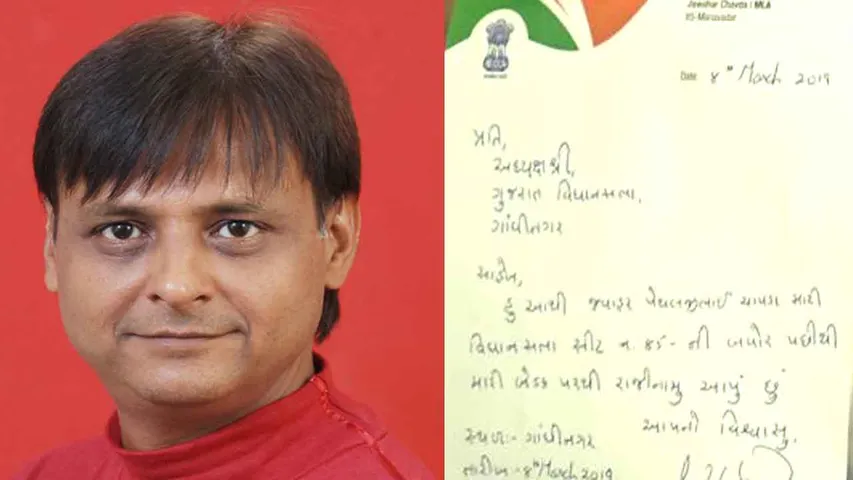 Jawahar Chavda | MLA
85-Manavadar
Date: ૪ᵗʰ March 2019
પ્રતિ,
અધ્યક્ષશ્રી,
ગુજરાત વિધાનસભા,
ગાંધીનગર
સાહેબ,
હું આથી જવાહર પેથલજીભાઈ ચાવડા મારી
વિધાનસભા સીટ નં. ૮૫ - ની બપોર પછીથી
મારી બેઠક પરથી રાજીનામુ આપું છું
આપનો વિશ્વાસુ,
સ્થળ:- ગાંધીનગર
તારીખ - ૪ᵗʰ March 2019